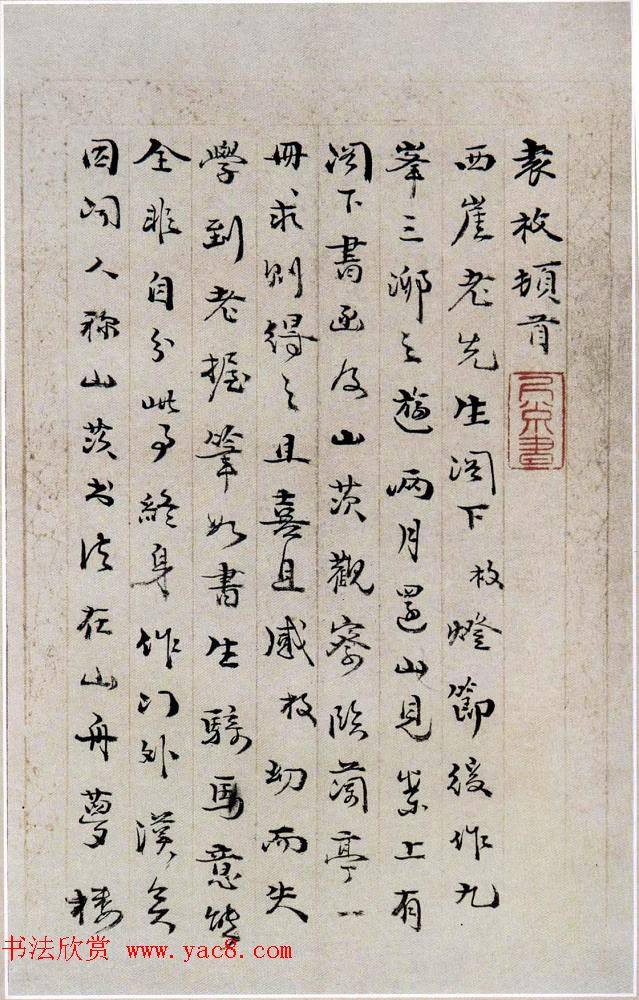 袁枚頓首
西崖老先生閣下枚燈節後作九
峯三泖之遊兩月還山見案上有
閣下書函及山茨觀察臨蘭亭一
冊求則得之且喜且感枚幼而失
學到老握筆如書生騎馬意勢
全非自分此事終身作门外漢矣
因问人稱山茨书法在山舟夢樓
书法欣赏 www.yac8.com